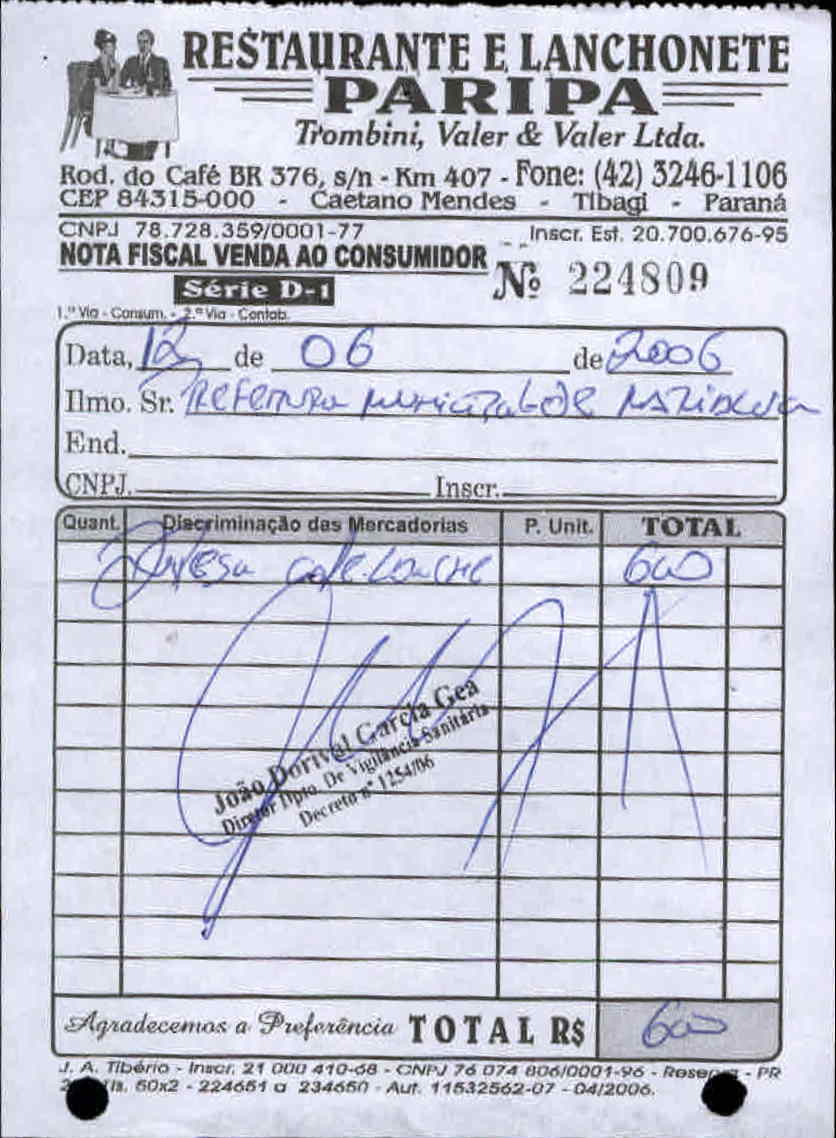 RESTAURANTE E LANCHONETE
PARIPA
Trombini, Valer & Valer Ltda.
Rod. do Café BR 376, s/n - Km 407 - Fone: (42) 3246-1106
CEP 84315-000 - Caetano Mendes - Tibagi - Paraná
CNPJ 78.728.359/0001-77 Inscr. Est. 20.700.676-95
NOTA FISCAL VENDA AO CONSUMIDOR
Série D-1 Nº 224809
1.ª Via - Consum. - 2.ª Via - Contab.
Data, 12 de 06 de 2006
Ilmo. Sr. Prefeitura Municipal de
End.
CNPJ. Inscr.
Quant. Discriminação das Mercadorias P. Unit. TOTAL
600
João Dorival Garcia Gea
Diretor Dpto. De Vigilância Sanitária
Decreto nº 1254/06
Agradecemos a Preferência TOTAL R$ 600
J. A. Tibério - Inscr. 21 000 410-68 - CNPJ 76 074 806/0001-96 - - PR
50x2 - 224651 a 234650 - Aut. 11532562-07 - 04/2006.